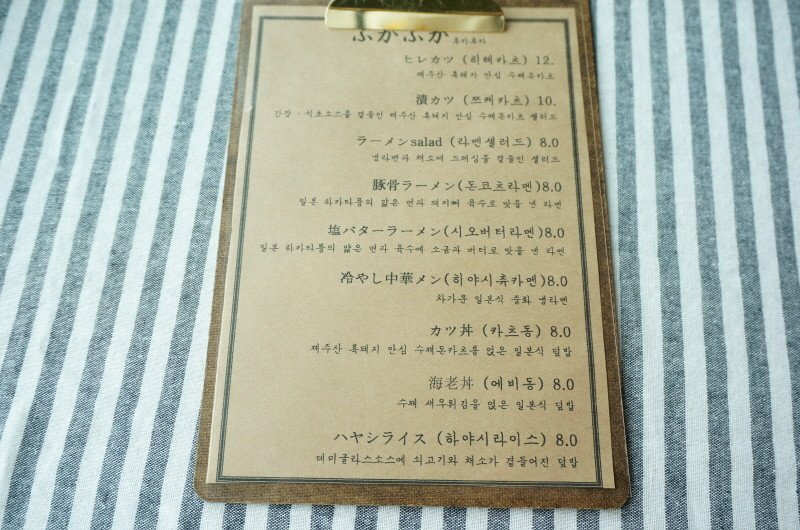 ふかふか 후카후카
ヒレカツ (히레카츠) 12.
제주산 흑돼지 안심 수제돈카츠
漬カツ (쯔케카츠) 10.
간장 · 식초소스를 곁들인 제주산 흑돼지 안심 수제돈카츠 샐러드
ラーメンsalad (라멘샐러드) 8.0
냉라멘과 채소에 드레싱을 곁들인 샐러드
豚骨ラーメン(돈코츠라멘)8.0
일본 하카타풍의 얇은 면과 돼지뼈 육수로 맛을 낸 라멘
塩バターラーメン(시오버터라멘)8.0
일본 하카타풍의 얇은 면과 육수에 소금과 버터로 맛을 낸 라멘
冷やし中華メン(히야시츄카멘)8.0
차가운 일본식 중화 냉라멘
カツ丼 (카츠동) 8.0
제주산 흑돼지 안심 수제돈카츠를 얹은 일본식 덮밥
海老丼 (에비동) 8.0
수제 새우튀김을 얹은 일본식 덮밥
ハヤシライス (하야시라이스) 8.0
데미글라스소스에 쇠고기와 채소가 곁들어진 덮밥